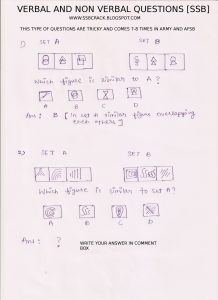 VERBAL AND NON VERBAL QUESTIONS [SSB]
WWW.SSBCRACK.BLOGSPOT.COM
THIS TYPE OF QUESTIONS ARE TRICKY AND COMES 7-8 TIMES IN ARMY AND AFSB
1) SET A SET B
Which figure is similar to A?
A B C D
Ans: B [In set A similar figure overlapping
each others]
2) SET A SET B
Which figure is similar to set A?
A B C D
Ans: ? WRITE YOUR ANSWER IN COMMENT
BOX